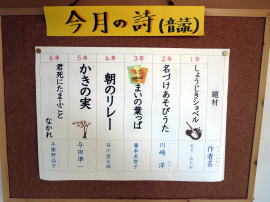 今月の詩(音読)
題材
作者名
1年
しょうじきショベル
2年
名づけあそびうた
川崎 洋
3年
まいの葉っぱ
4年
朝のリレー
谷川俊太郎
5年
かきの実
与田準一
6年
君死にたまふこと
なかれ
与謝野晶子